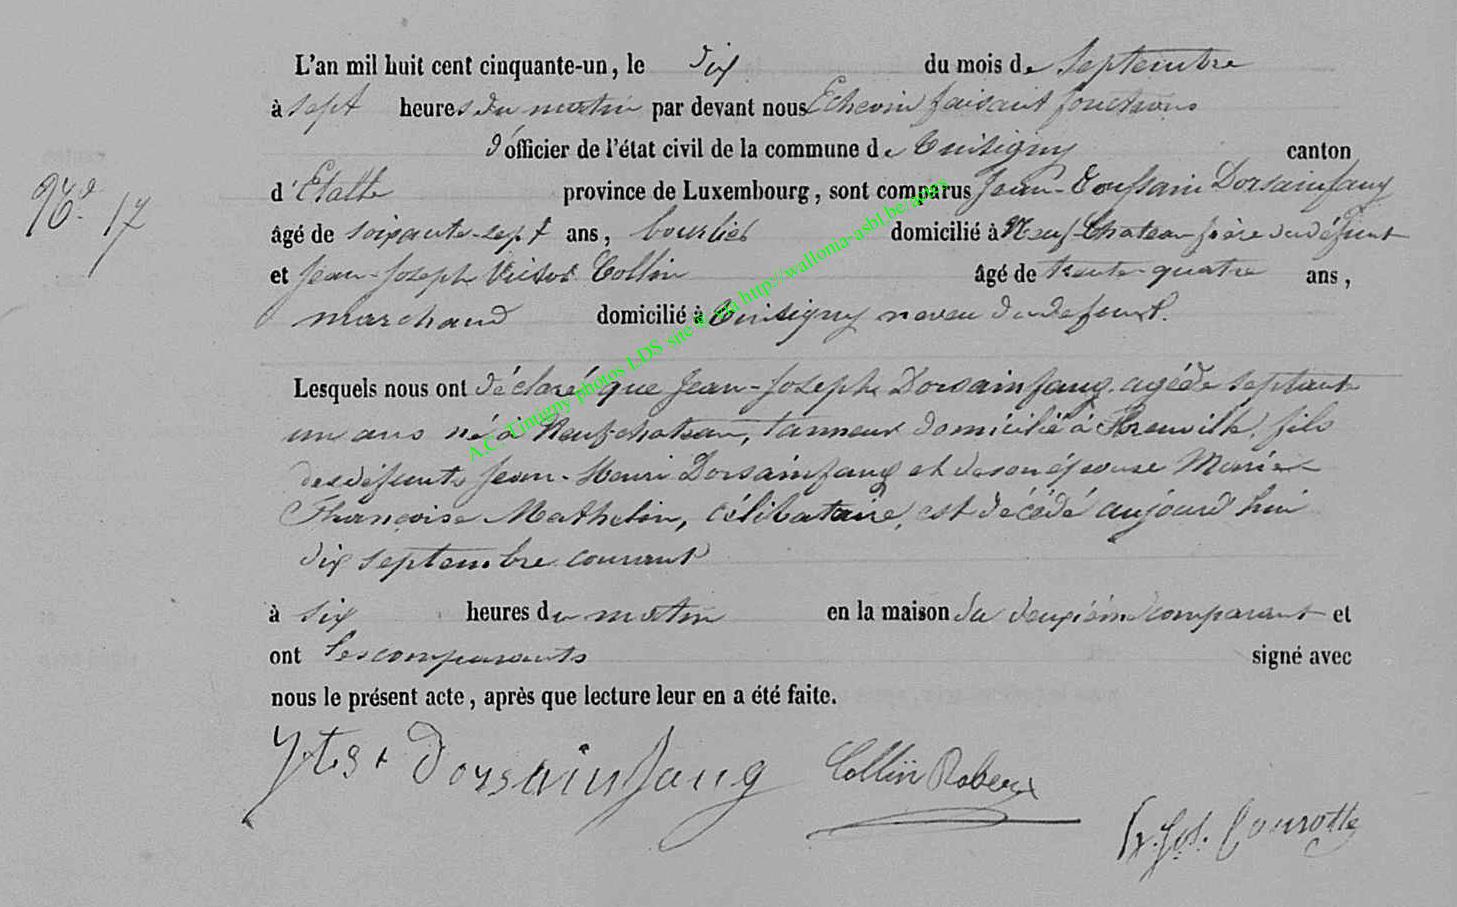 L'an mil huit cent cinquante-un, le dix du mois de Septembre
à sept heures du matin par devant nous Echevin faisant fonctions
d'officier de l'état civil de la commune de Tintigny canton
d'Etalle province de Luxembourg, sont comparus Jean-Toussain Dorsainfang
Nº 17
âgé de soixante-sept ans, bourlier domicilié à Neuf-Chateau frère du défunt
et Jean-Joseph Victor Collin âgé de trente-quatre ans,
marchand domicilié à Tintigny neveu du defunt.
Lesquels nous ont déclaré que Jean-Joseph Dorsainfang agé de septante
un ans né à Neufchateau, tanneur domicilié à fils
des défunts Jean-Henri Dorsainfang et de son épouse Marie
Françoise Mathelin, célibataire, est décédé aujourd'hui
dix septembre courant
à six heures du matin en la maison du deuxième comparant et
ont les comparants signé avec
nous le présent acte, après que lecture leur en a été faite.
Dorsainfang Collin
A.C. Tintigny photos LDS site via http://wallonia-asbl.be/actes